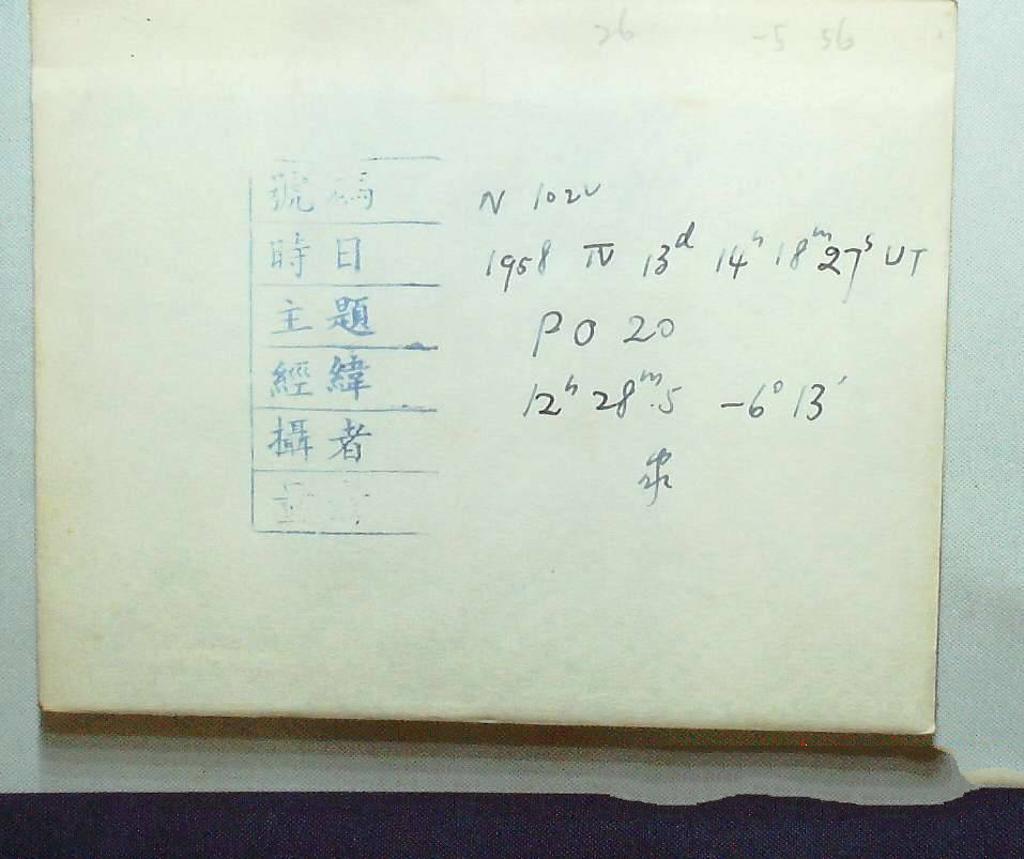 26 -5 56
號碼 N 102V
時日 1958 IV 13ᵈ 14ʰ 18ᵐ 27ˢ UT
主題 PO 20
經緯 12ʰ 28ᵐ.5 -6° 13′
攝者